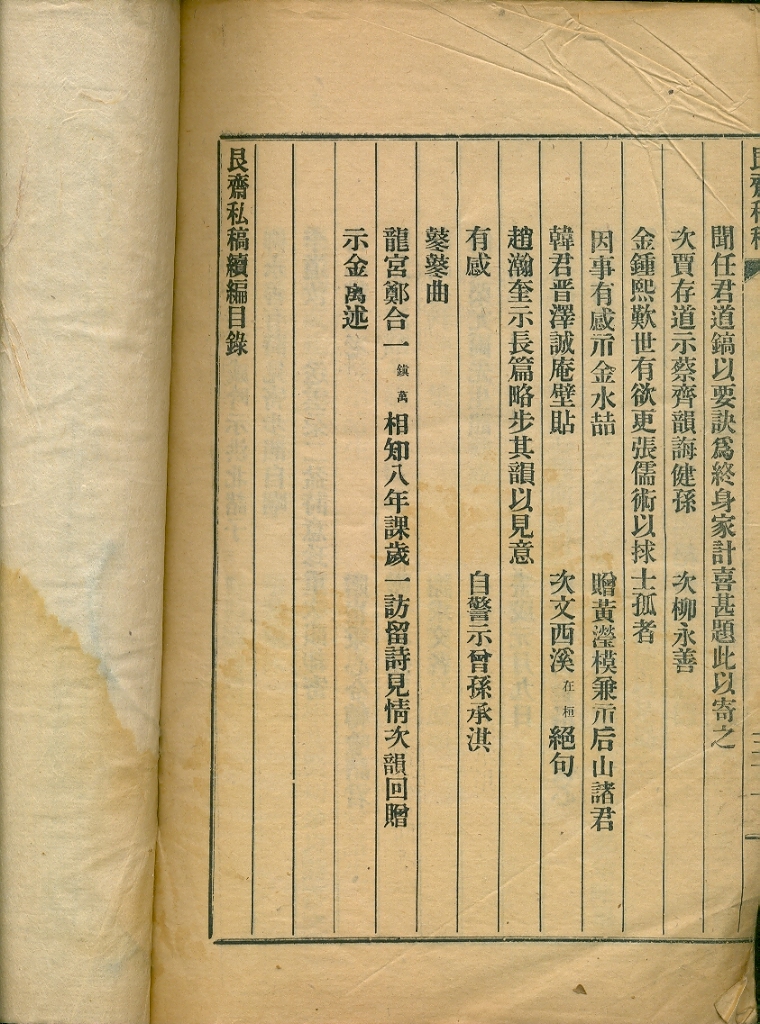 艮齋私稿
聞任君道鎬以要訣爲終身家計喜甚題此以寄之
次賈存道示蔡齊韻誨健孫　次柳永善
金鍾熙歎世有欲更張儒術以捄士孤者
因事有感示金水喆　贈黃瀅模兼示后山諸君
韓君晋澤誠庵壁貼　次文西溪在桓絕句
趙瀚奎示長篇略步其韻以見意
有感　自警示曾孫承淇
蔘蔘曲
龍宮鄭合一鎭萬相知八年課歲一訪留詩見情次韻回贈
示金禼述
艮齋私稿續編目錄